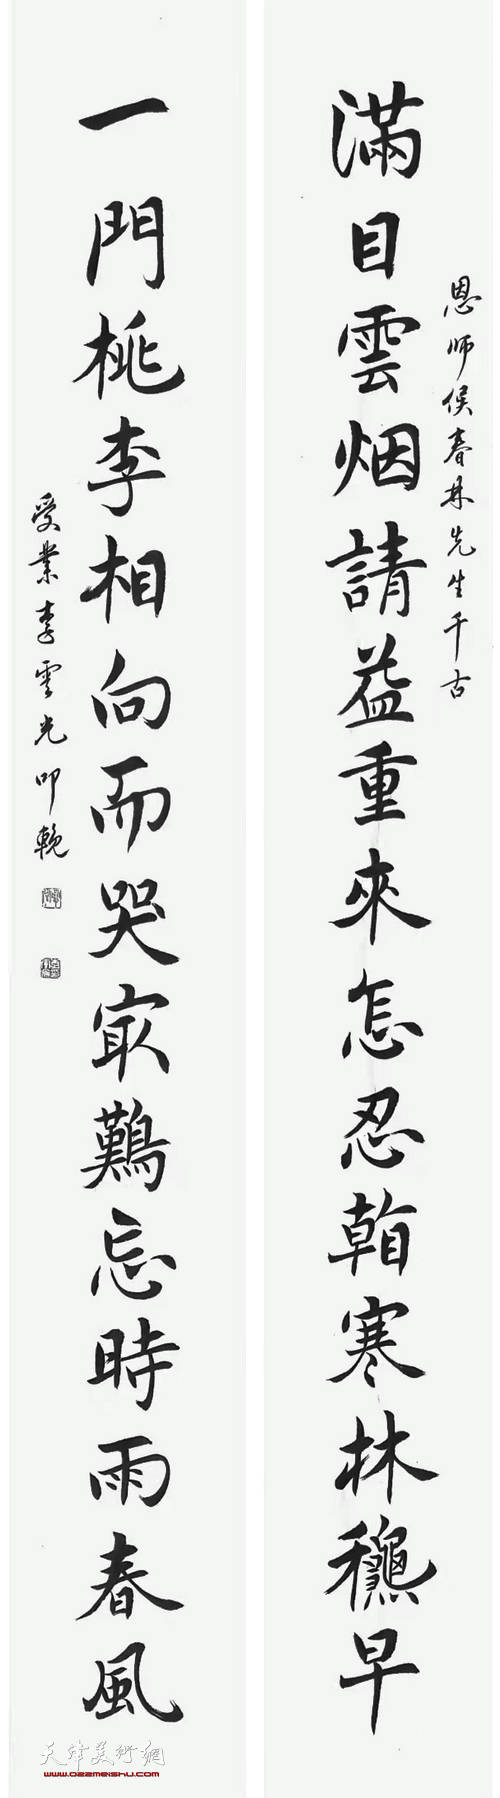 恩師侯春林先生千古
滿目雲烟請益重來怎忍看寒林龝早
一門桃李相向而哭㝡難忘時雨春風
受業李雲光叩輓
天津美術網
www.022meishu.com